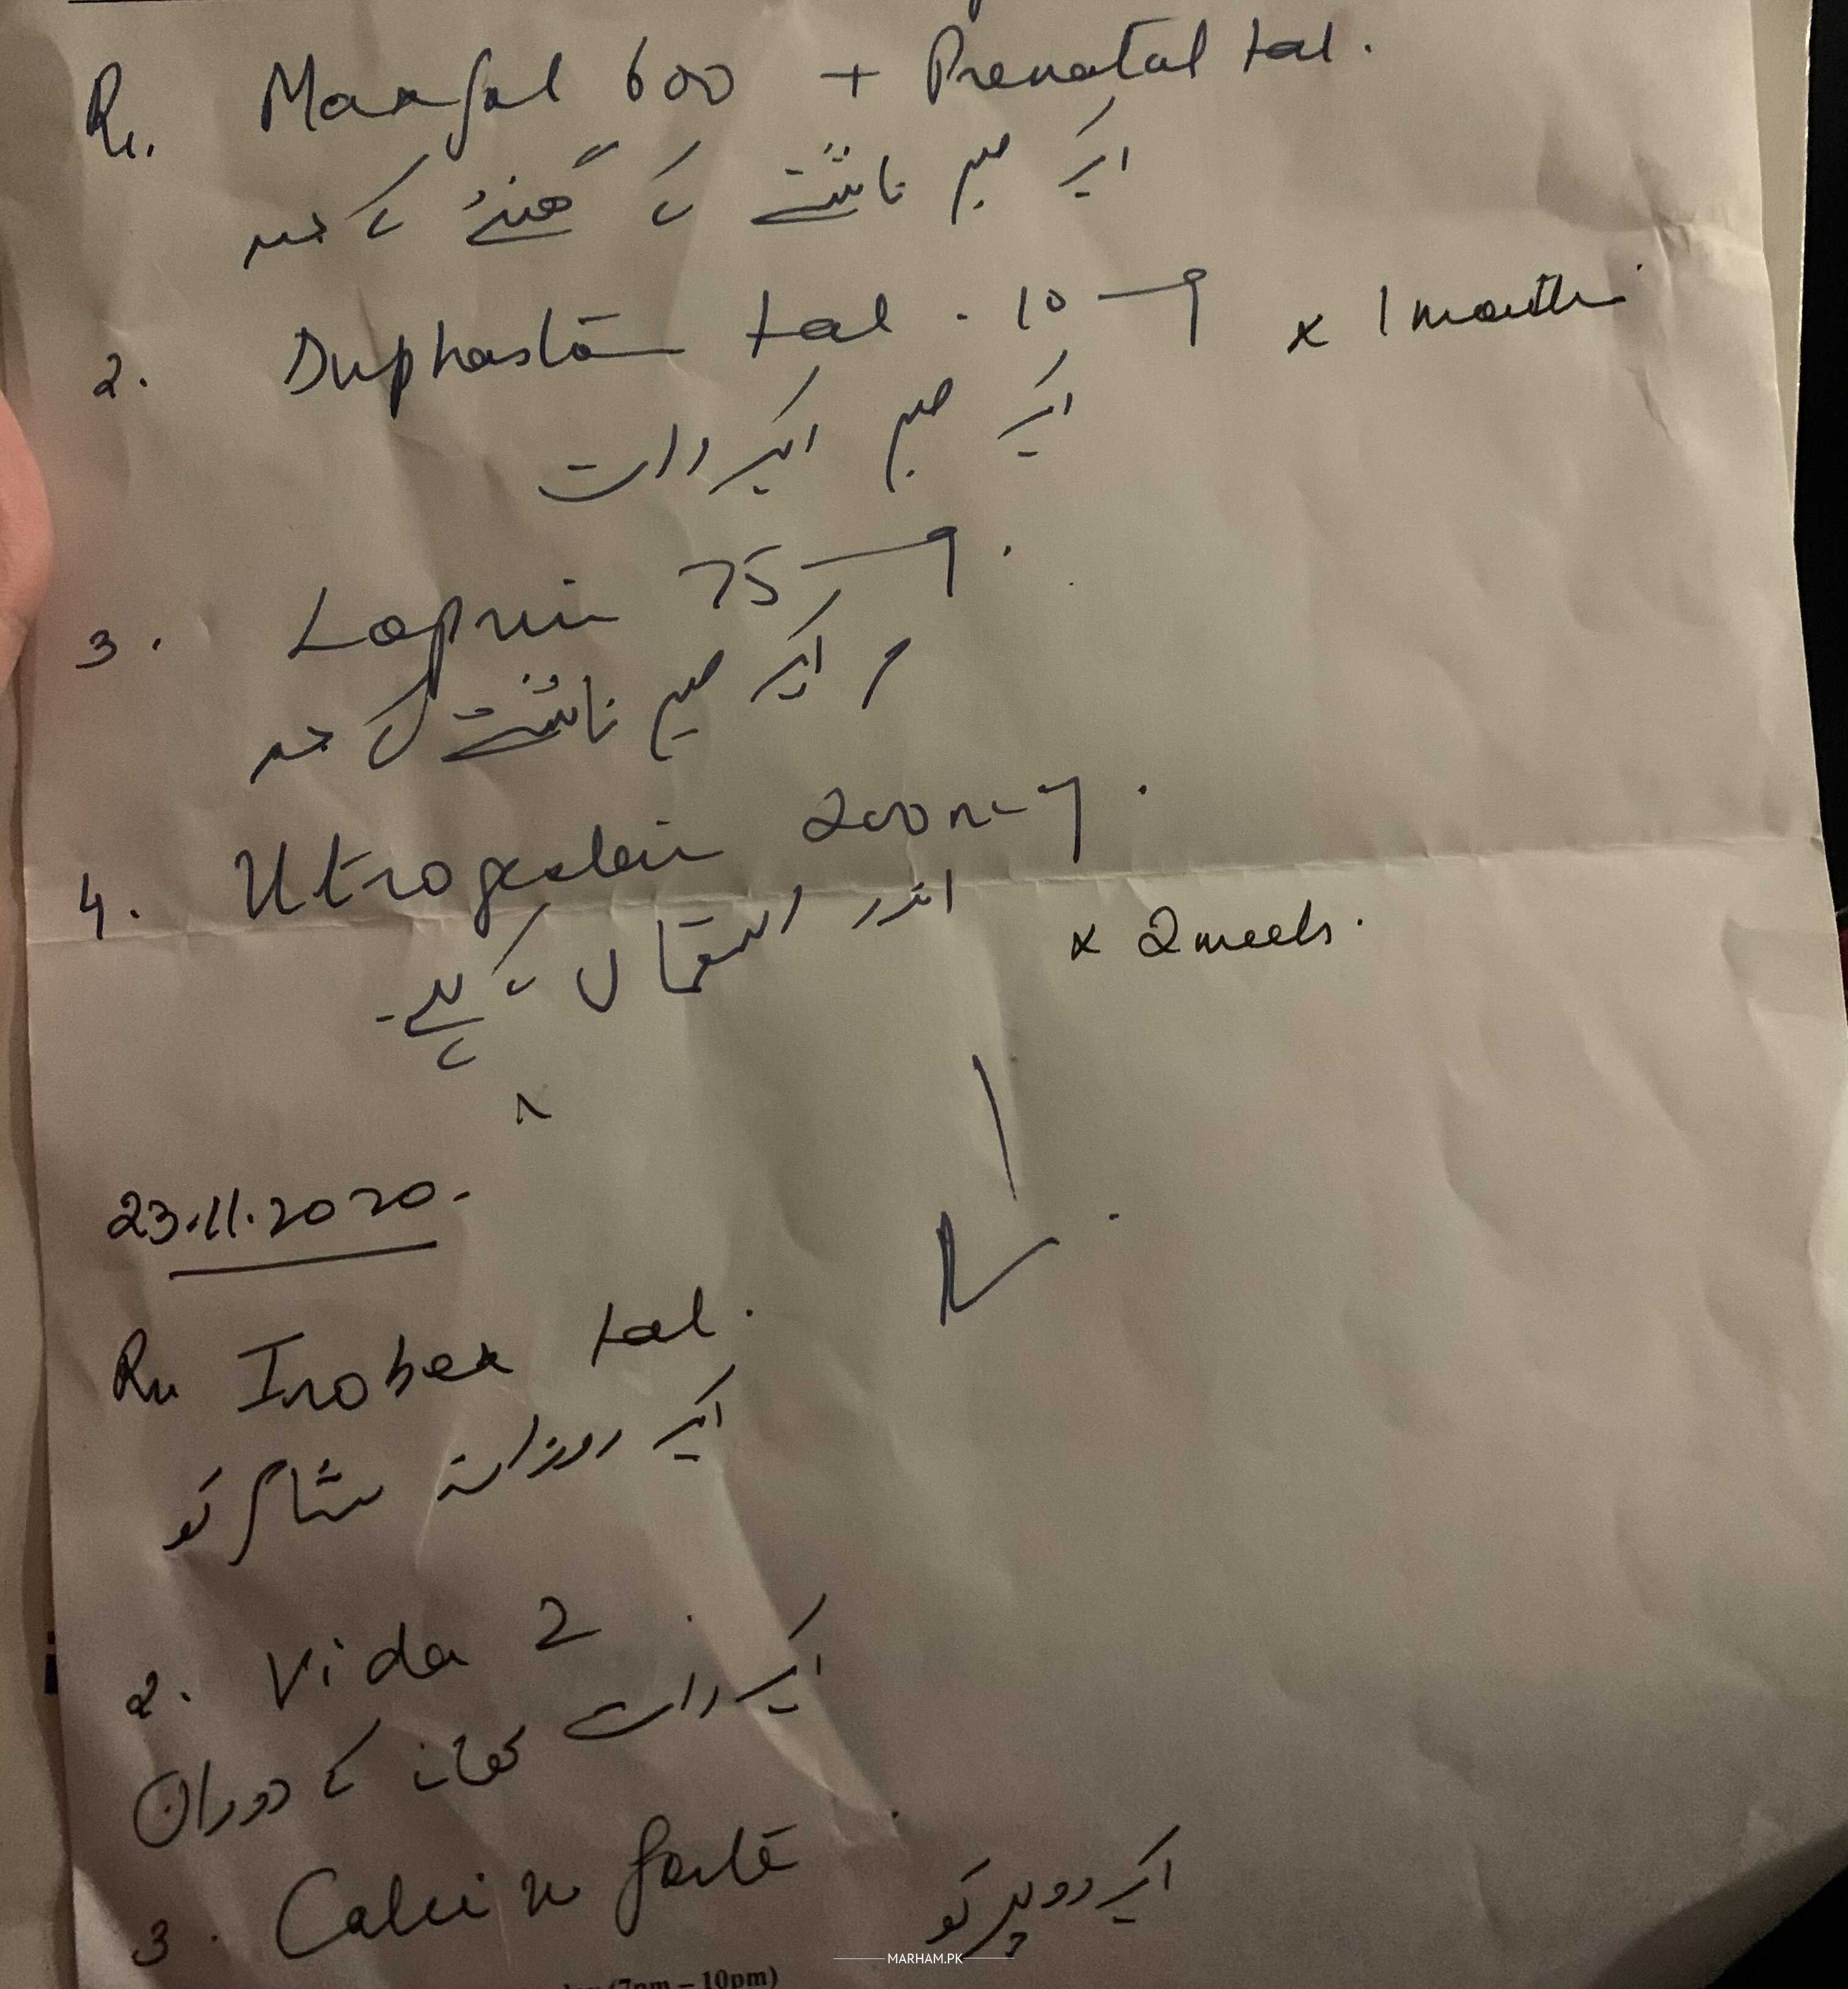 Rx. Maxfol 600 + Prenatal tab.
ایک صبح ناشتے کے گھنٹے کے بعد
2. Duphaston tab. 10 mg x 1 month
ایک صبح ایک رات
3. Loprin 75 mg.
ایک صبح ناشتے کے بعد
4. Utrogestan 200 mg.
اندر استعمال کے لیے۔ x 2 weeks.
23.11.2020.
Rx Irobex tab.
ایک روزانہ شام کو
2. Vida 2
ایک رات کھانے کے دوران
3. Calcin forte ایک دوپہر کو
(7pm – 10pm)
MARHAM.PK